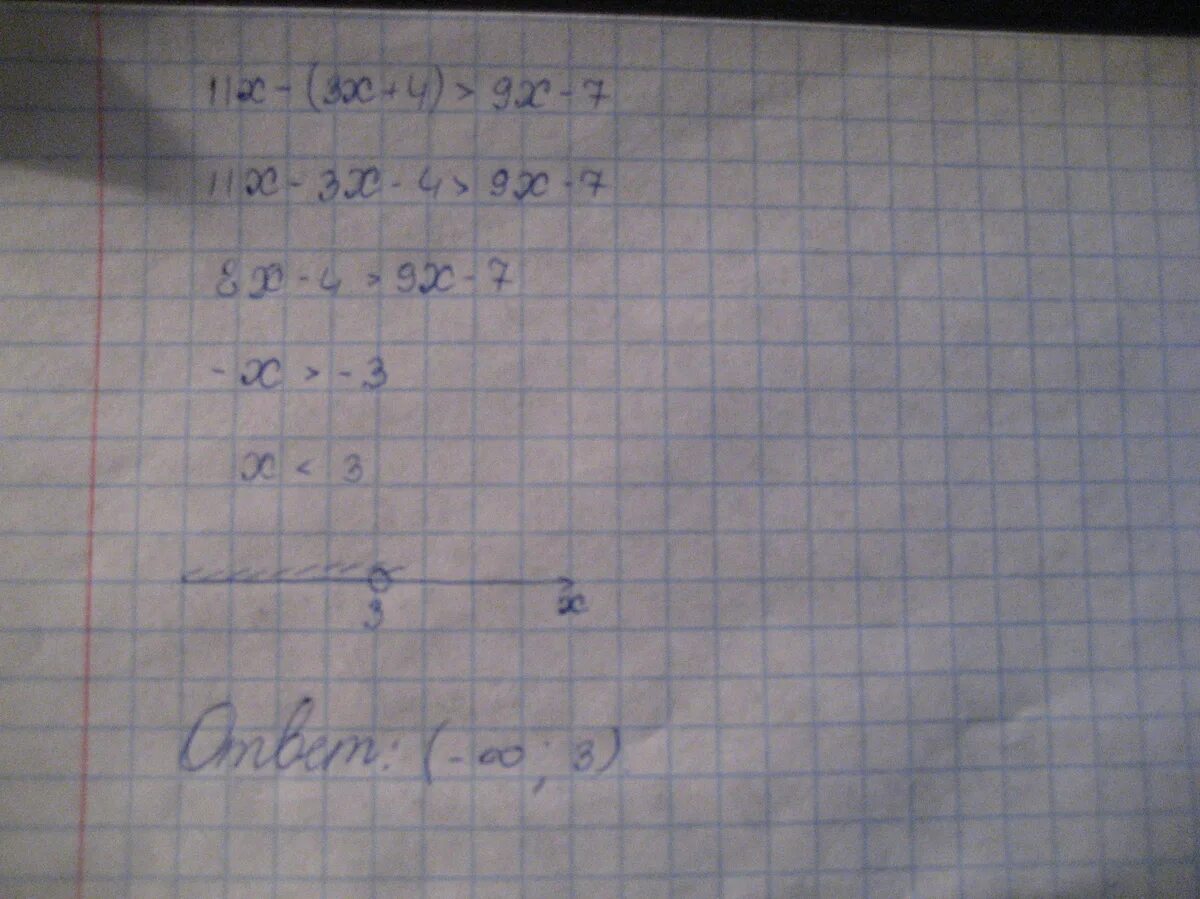 11x - (3x + 4) > 9x - 7
11x - 3x - 4 > 9x - 7
8x - 4 > 9x - 7
-x > -3
x < 3
3 x
Ответ: (-∞; 3)